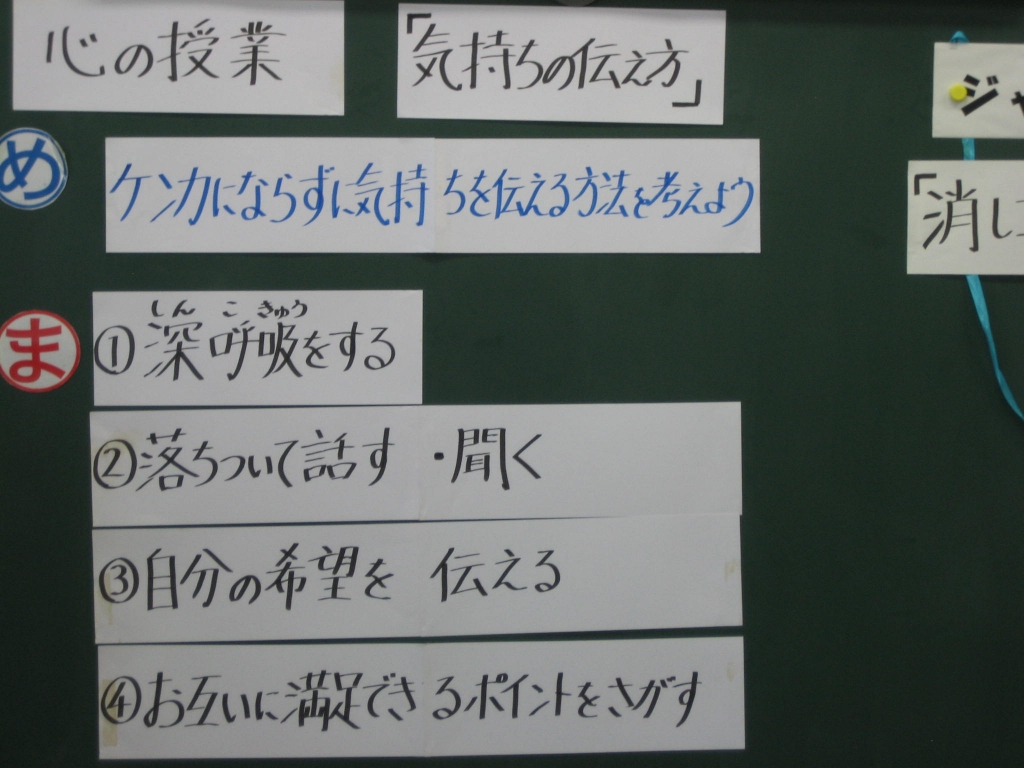 心の授業
「気持ちの伝え方」
め
ケンカにならずに気持ちを伝える方法を考えよう
ま
しんこきゅう
①深呼吸をする
②落ちついて話す・聞く
③自分の希望を伝える
④お互いに満足できるポイントをさがす
ジャ
「消し